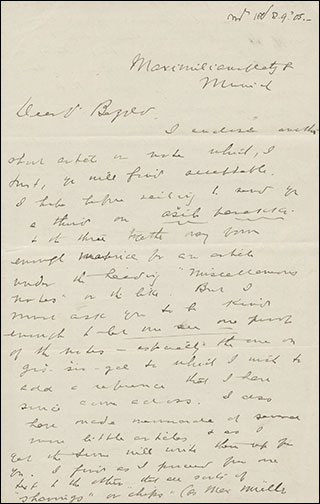 Maximiliansplatz
Munich
Dear Dr Bezold.
I enclose another
short article or note which, I
trust, you will find acceptable.
I hope before sailing to send you
a third on
& the three together may form
enough for an article
under the heading "Miscellaneous
notes" or the like. But I
must ask you to be kind
enough to let me see one proof
of the notes – especially the one on
to which I wish to
add a reference that I have
since come across. I also
have made memoranda of several
more little articles & as I
get the time will write them up for
you. I find as I proceed from one
text to the other that are sorts of
"shavings" or chips – (as Max Müller